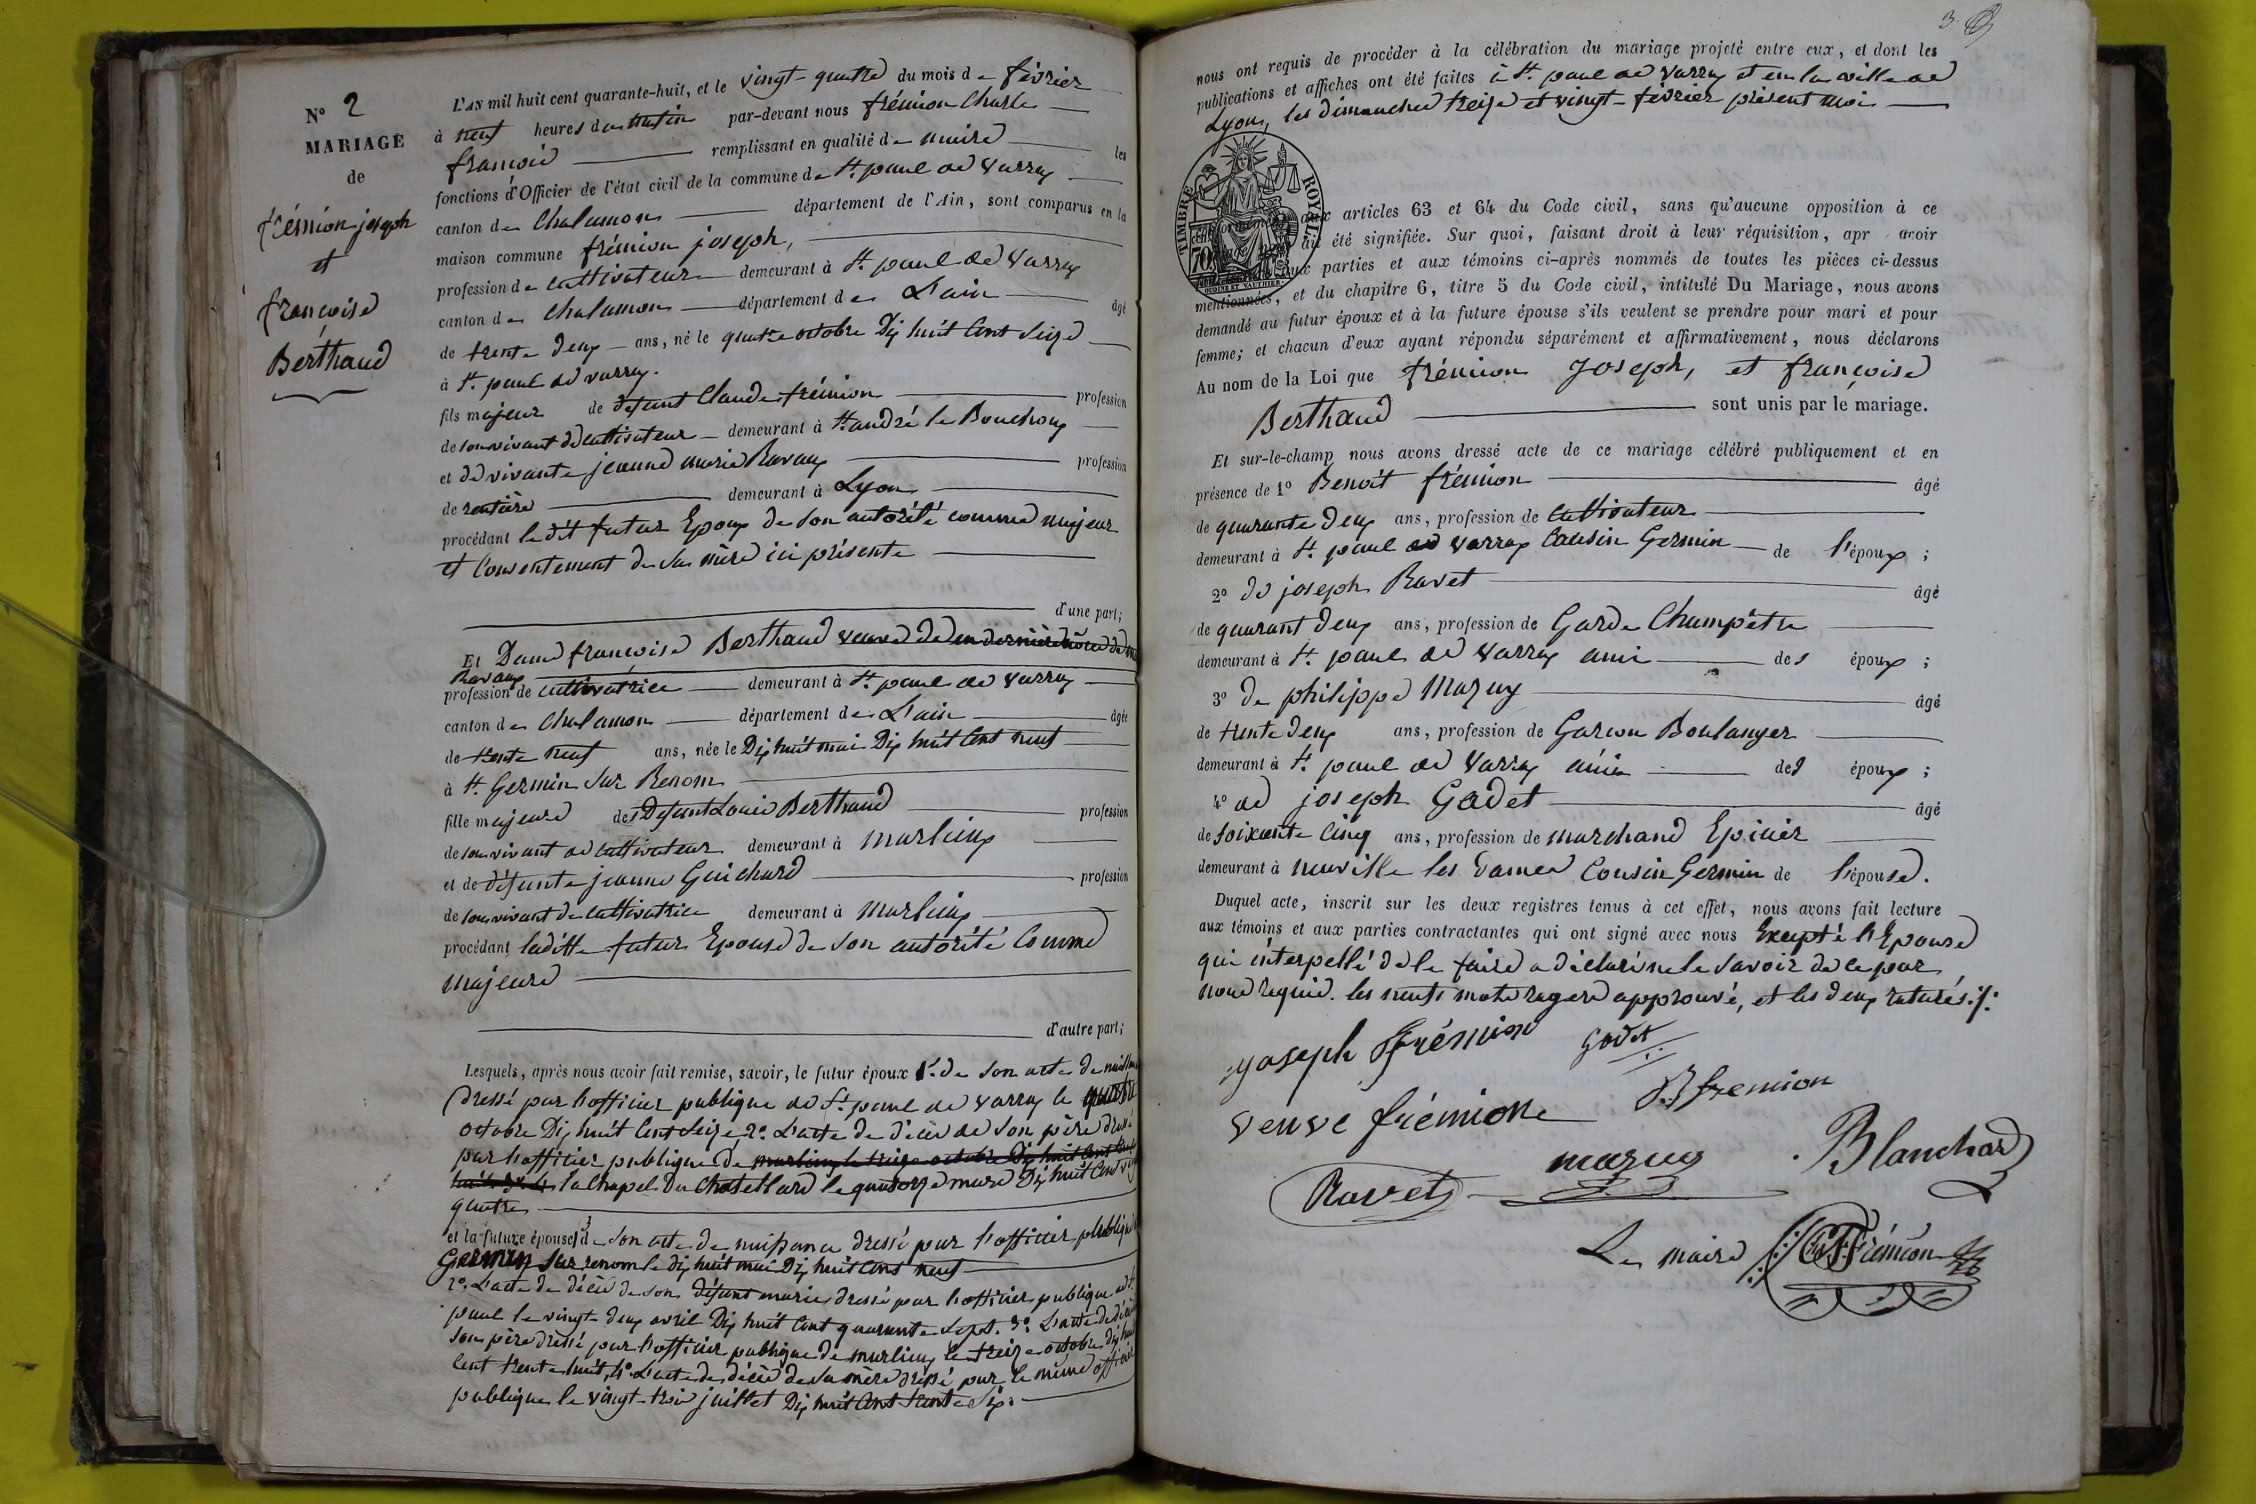 N° 2
MARIAGE
de
frémion joseph
et
françoise
Berthaud
L'AN mil huit cent quarante-huit, et le vingt-quatre du mois de février
à neuf heures du matin par-devant nous frémion Charle
françois remplissant en qualité de maire les
fonctions d'Officier de l'état civil de la commune de St. paul de Varray
canton de Chalamon département de l'Ain, sont comparus en la
maison commune frémion joseph,
profession de cultivateur demeurant à St. paul de Varray
canton de Chalamon département de L'ain âgé
de trente deux ans, né le quatre octobre Dix huit Cent Seize
à St. paul de varray.
fils majeur de defunt Claude frémion profession
de son vivant de cultivateur demeurant à St. andré le Bouchoux
et de vivante jeanne marie Ravaux profession
de rentière demeurant à Lyon
procédant le dit futur Epoux de son autorité comme majeur
et Consentement de sa mère ici présente
d'une part;
Et Dame françoise Berthaud veuve de en dernière noce de
Ravaux
profession de cultivatrice demeurant à St. paul de Varray
canton de Chalamon département de L'ain âgée
de trente neuf ans, née le Dix huit mai Dix huit Cent neuf
à St. Germin Sur Renom
fille majeure de Defunt Louis Berthaud profession
de son vivant de cultivateur demeurant à Marlieux
et de défunte jeanne Guichard profession
de son vivant de cultivatrice demeurant à Marlieux
procédant ladite futur Epouse de son autorité Comme
majeure
d'autre part;
Lesquels, après nous avoir fait remise, savoir, le futur époux 1°. de son acte de
dressé par l'officier publique de St. paul de Varray le quatre
octobre Dix huit Cent Seize 2°. L'acte de décès de son père dressé
par l'officier publique de marlieux le treize octobre Dix huit Cent
la Chapel Du Chatellard le quatorze mars Dix huit Cent
quatre
et la future épouse 1° de son acte de naissance dressé par l'officier publique
Germin Sur renom le dix huit mai Dix huit Cent neuf
2°. L'acte de décès de son défunt marie dressé par l'officier publique de St.
paul le vingt-deux avril Dix huit Cent quarante Sept. 3°. L'acte de décès
son père dressé par l'officier publique de marlieux le treize octobre dix huit
Cent trente huit, 4°. L'acte de décès de sa mère dressé par le même officier
publique le vingt-trois juillet Dix huit Cent trente Six.
3.
nous ont requis de procéder à la célébration du mariage projeté entre eux, et dont les
publications et affiches ont été faites à St. paul de Varray et en la ville de
Lyon, les dimanches treize et vingt février présent moi
TIMBRE ROYAL
70
aux articles 63 et 64 du Code civil, sans qu'aucune opposition à ce
ait été signifiée. Sur quoi, faisant droit à leur réquisition, apr avoir
aux parties et aux témoins ci-après nommés de toutes les pièces ci-dessus
mentionnées, et du chapitre 6, titre 5 du Code civil, intitulé Du Mariage, nous avons
demandé au futur époux et à la future épouse s'ils veulent se prendre pour mari et pour
femme; et chacun d'eux ayant répondu séparément et affirmativement, nous déclarons
Au nom de la Loi que frémion Joseph, et françoise
Berthaud sont unis par le mariage.
Et sur-le-champ nous avons dressé acte de ce mariage célébré publiquement et en
présence de 1° Benoit frémion âgé
de quarante deux ans, profession de cultivateur
demeurant à St. paul de varray Cousin Germin de l'époux;
2° de joseph Ravet âgé
de quarant deux ans, profession de Garde Champêtre
demeurant à St. paul de Varray ami des époux;
3° de philippe Mazuy âgé
de trente deux ans, profession de Garçon Boulanger
demeurant à St. paul de Varray ami des époux;
4° de joseph Godet âgé
de soixante Cinq ans, profession de marchand Epicier
demeurant à neuville les Dames Cousin Germin de l'épouse.
Duquel acte, inscrit sur les deux registres tenus à cet effet, nous avons fait lecture
aux témoins et aux parties contractantes qui ont signé avec nous Excepté l'Epouse
qui interpellé de le faire a déclaré ne le savoir de ce par
nous requis. les neufs mots rayers approuvé, et les deux raturés ./.
Joseph Frémion
Godet
B frémion
veuve frémion
mazuy
Blanchard
Ravet
Le maire Frémion